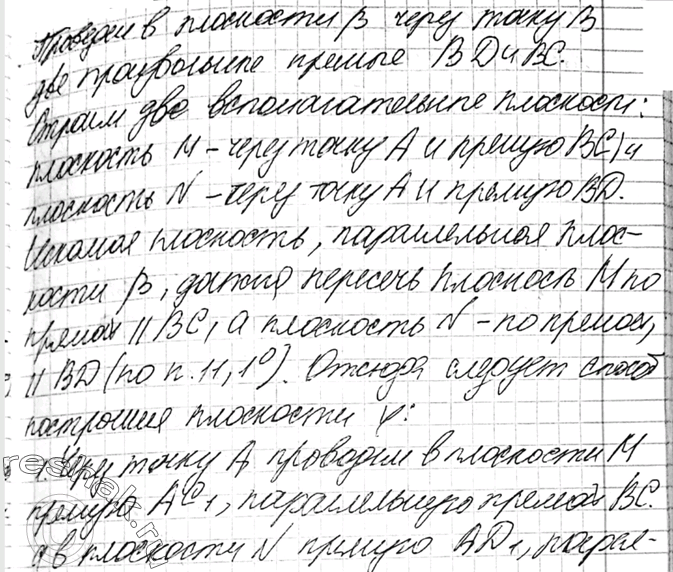 Проведем в плоскости β через точку B
две произвольные прямые BD и BC.
Строим две вспомогательные плоскости:
плоскость M - через точку A и прямую BC, и
плоскость N - через точку A и прямую BD.
Искомая плоскость, параллельная плос-
кости β, должна пересечь плоскость M по
прямой || BC, а плоскость N - по прямой,
|| BD (по п. 11, 1°). Отсюда следует способ
построения плоскости γ:
1. Через точку A проводим в плоскости M
прямую AC₁, параллельную прямой BC.
а в плоскости N прямую AD₁, парал-